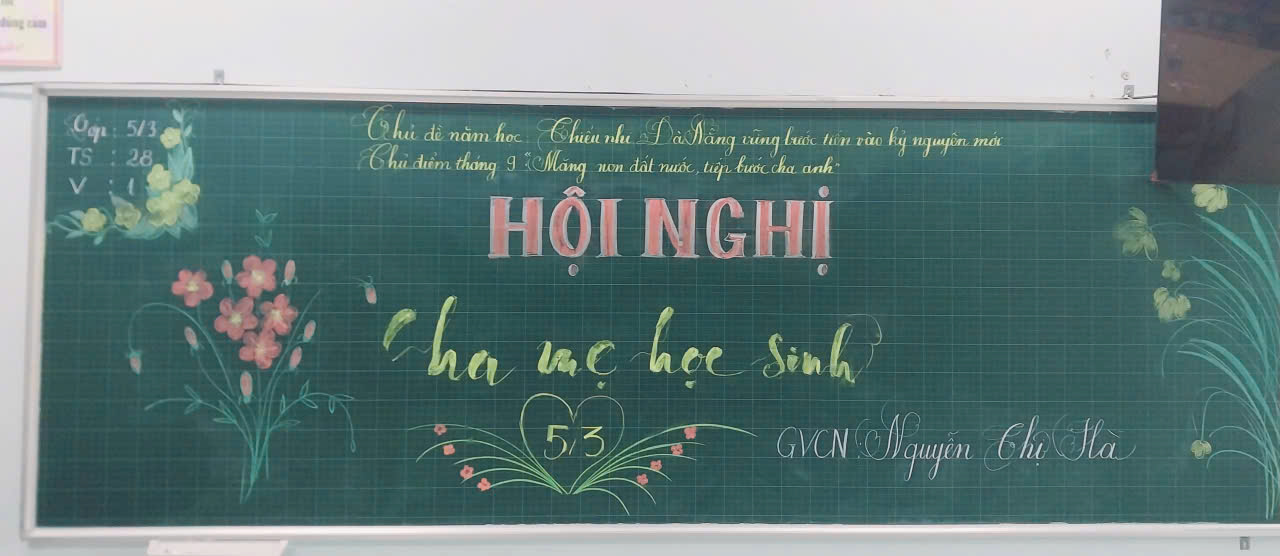 dũng cảm
Lớp : 5/3
TS : 28
V : 1
Chủ đề năm học Thiếu nhi Đà Nẵng vững bước tiến vào kỷ nguyên mới
Chủ điểm tháng 9 "Măng non đất nước, tiếp bước cha anh"
HỘI NGHỊ
Cha mẹ học sinh
5/3
GVCN Nguyễn Thị Hà